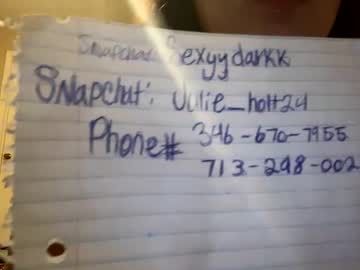 Snapchat Sexyydarkk
Snapchat: Julie_holt24
Phone# 346-670-7955
713-298-002